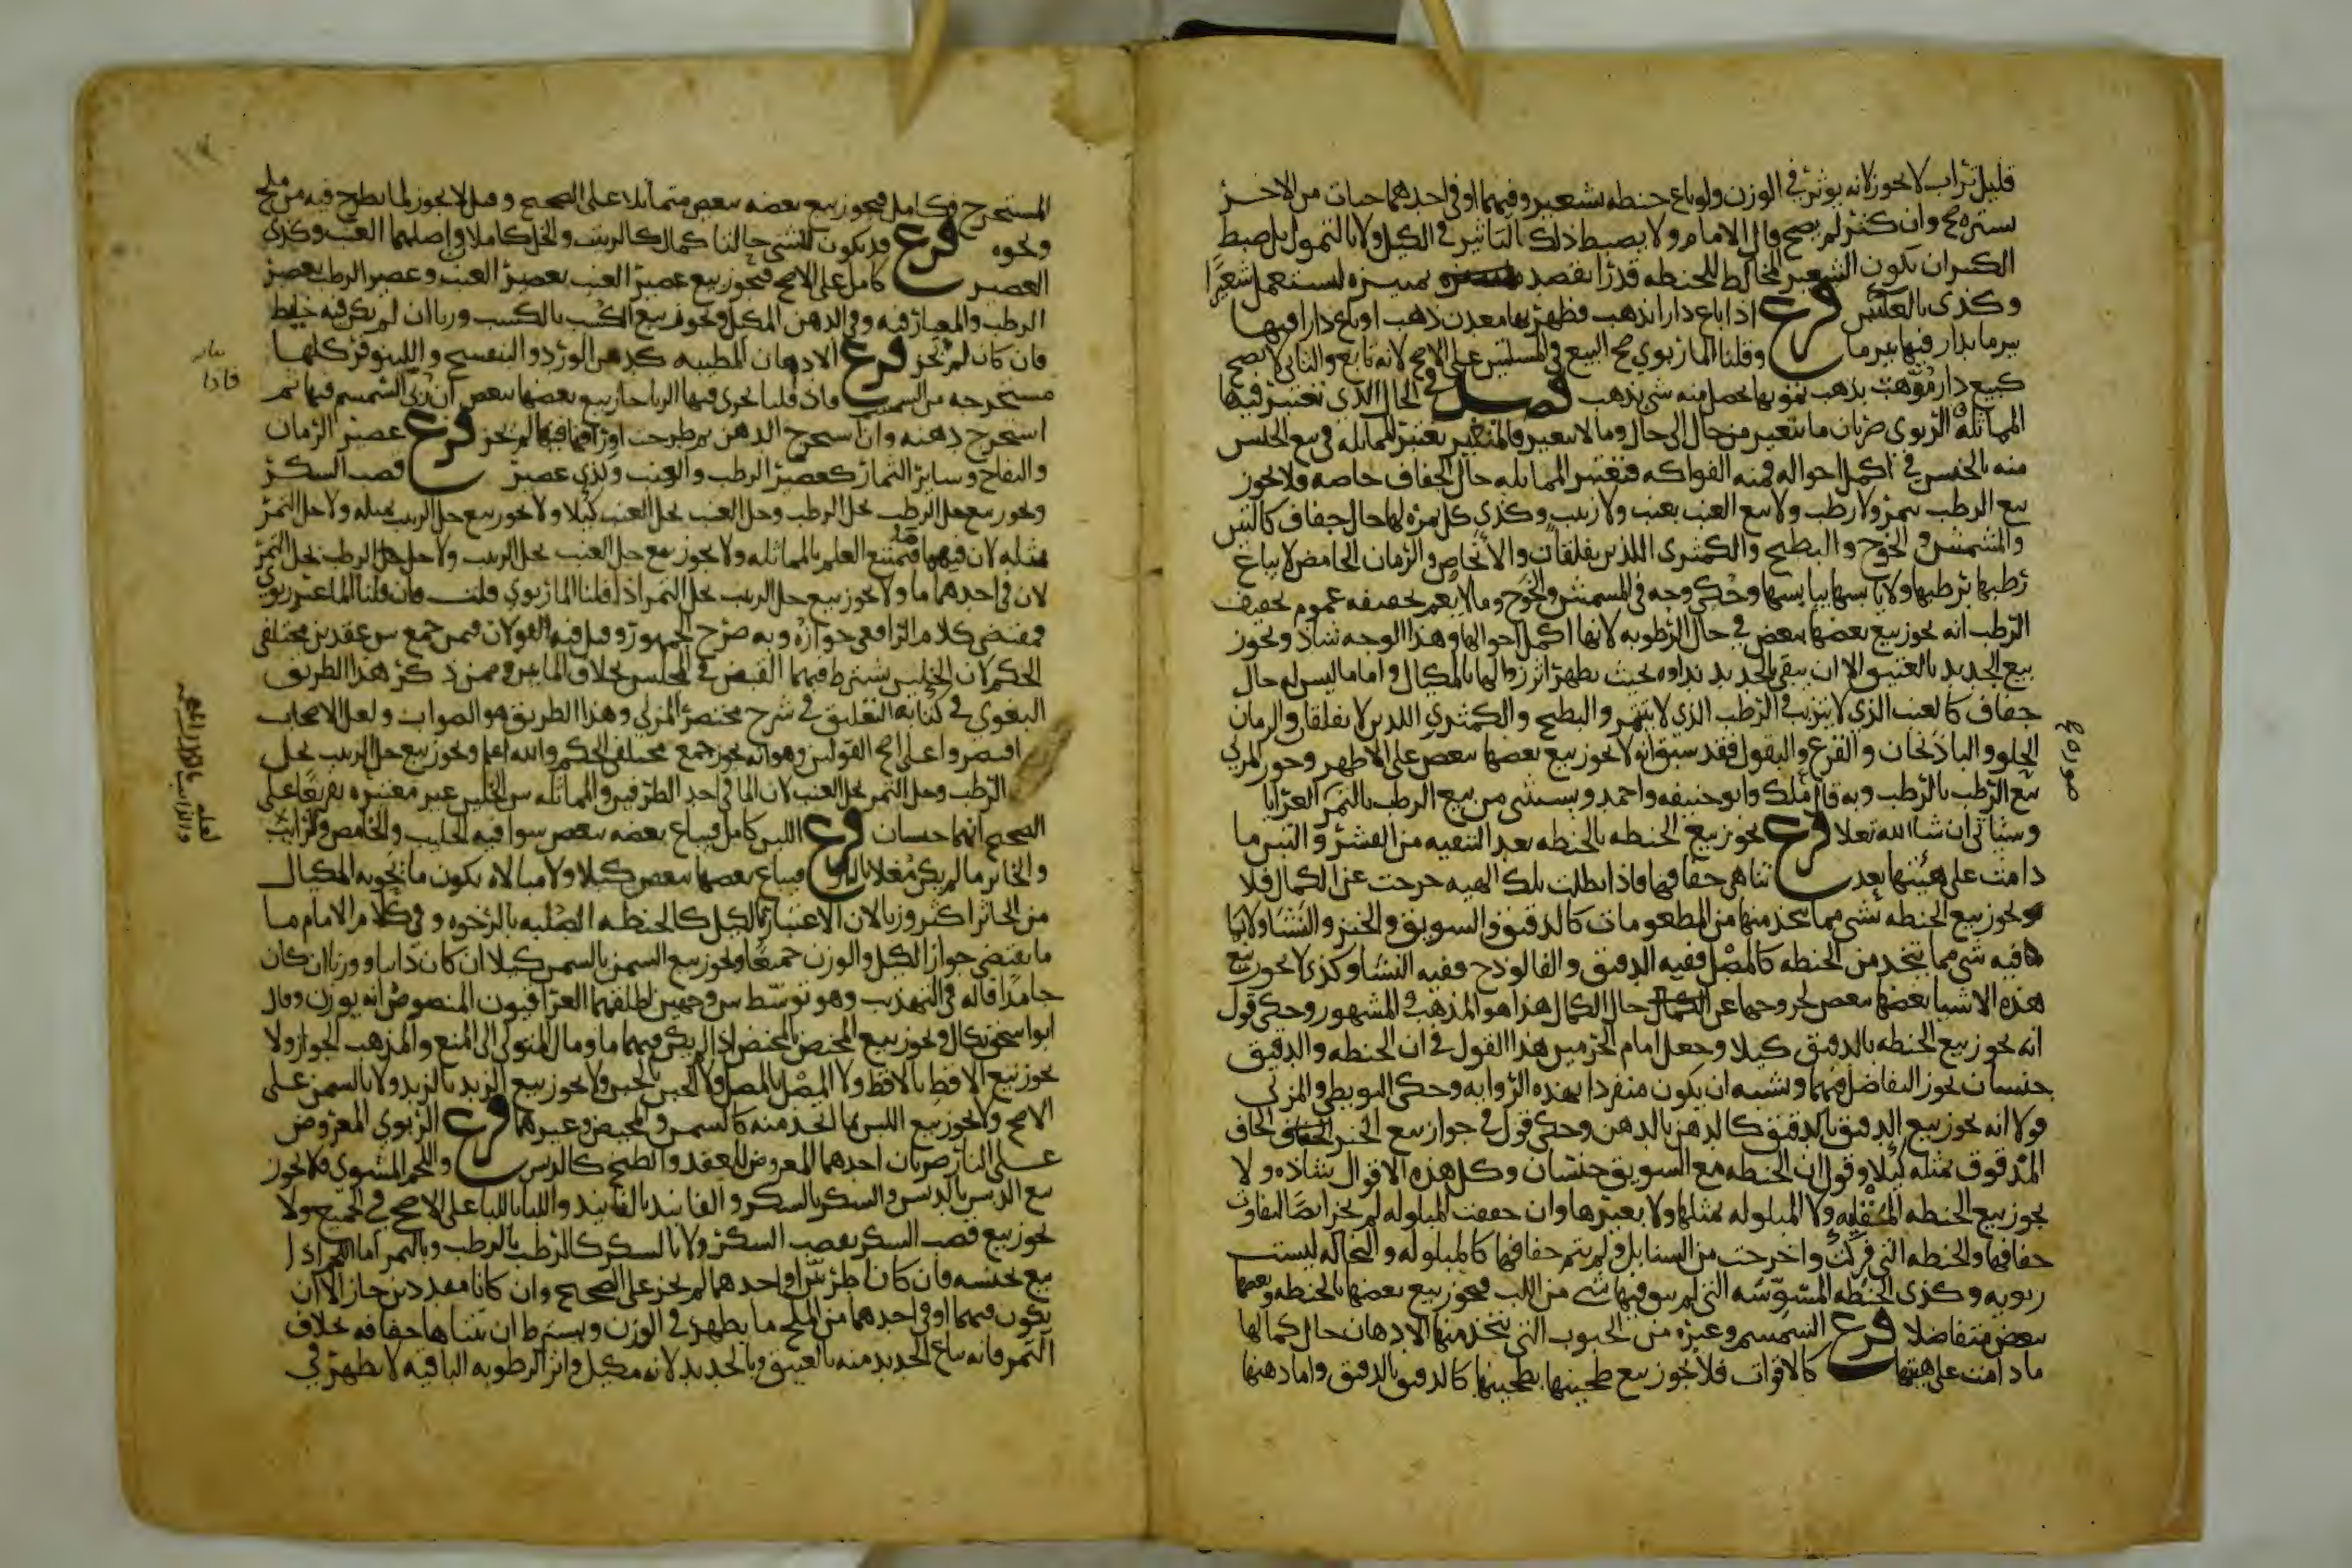 قليل تراب لا يجوز لانه يوثر في الوزن ولو باع حنطه بشعير وفيهما او في احدهما حبات من الاخر
يسيره صح وان كثر لم يصح قال الامام ولا يضبط ذلك بالتاثير في الكيل ولا بالتمول بل ضبط
الكثير ان يكون الشعير المخالط للحنطه قدرا يقصد تمييزه ليستعمل شعيرا
وكذى بالعكس فرع اذا باع دارا بذهب فظهر بها معدن ذهب او باع دارا فيها
بير ما بدار فيها بير ما وقلنا الما ربوي صح البيع في المسلتين على الاصح لانه تابع والثاني لا يصح
كبيع دار موهت بذهب تمويها يحصل منه شي بذهب فصل في الحال الذي تعتبر فيها
المماثله الربوي ضربان ما يتغير من حال الى حال وما لا يتغير فالمتغير يعتبر المماثله في بيع الجنس
منه بالجنس في اكمل احواله فمنه الفواكه فتعتبر المماثله حال الجفاف خاصه فلا يجوز
بيع الرطب بتمر ولا رطب ولا بيع العنب بعنب ولا زبيب وكذى كل ثمره لها حال جفاف كالتين
والمشمش والخوخ والبطيخ والكمثرى اللذين يفلقان والاجاص والرمان الحامض لا يباع
رطبها برطبها ولا يابسها بيابسها وحكي وجه في المشمش والخوخ وما لا يعم تجفيفه عموم تجفيف
الرطب انه يجوز بيع بعضها ببعض في حال الرطوبه لانها اكمل احوالها وهذا الوجه شاذ ويجوز
بيع الجديد بالعتيق الا ان يبقى بالجديد نداوه بحيث يظهر اثر زوالها بالمكيال واما ما ليس له حال
جفاف كالعنب الذي لا يتزبب والرطب الذي لا يتتمر والبطيخ والكمثري اللذين لا يفلقان والرمان
الحلو والباذنجان والقرع والبقول فقد سبق انه لا يجوز بيع بعضها ببعض على الاظهر وجوز المزني
بيع الرطب بالرطب وبه قال ملك وابو حنيفه واحمد ويستثنى من بيع الرطب بالتمر العرايا
وستاتي ان شا الله تعلا فرع يجوز بيع الحنطه بالحنطه بعد التنقيه من القشر والتبن ما
دامت على هيئتها بعد تناهي جفافها فاذا بطلت تلك الهيه خرجت عن الكمال فلا
يجوز بيع الحنطه بشي مما يتخذ منها من المطعومات كالدقيق والسويق والخبز والنشا ولا بما
فيه شي مما يتخذ من الحنطه كالمصل ففيه الدقيق والفالوذج ففيه النشا وكذى لا يجوز بيع
هذه الاشيا بعضها ببعض لخروجها عن حال الكمال هذا هو المذهب المشهور وحكي قول
انه يجوز بيع الحنطه بالدقيق كيلا وجعل امام الحرمين هذا القول في ان الحنطه والدقيق
جنسان يجوز التفاضل فيهما ويشبه ان يكون منفردا بهذه الروايه وحكى البويطي والمزني
قولا انه يجوز بيع الدقيق بالدقيق كالدهن بالدهن وحكي قول في جواز بيع الخبز الجاف
المدقوق بمثله كيلا وقول ان الحنطه مع السويق جنسان وكل هذه الاقوال شاذه ولا
يجوز بيع الحنطه المقليه ولا المبلوله بمثلها ولا بغيرها وان جففت المبلوله لم يجز ايضا لتفاوت
جفافها والحنطه التي فركت واخرجت من السنابل ولم يتم جفافها كالمبلوله والنخاله ليست
ربويه وكذى الحنطه المسوسه التي لم يبق فيها شي من اللب فيجوز بيع بعضها بالحنطه وبعضها
ببعض متفاضلا فرع السمسم وغيره من الحبوب التي يتخذ منها الادهان حال كمالها
ما دامت على هيتها كالاقوات فلا يجوز بيع طحينها بطحينها كالدقيق بالدقيق واما دهنها
المستخرج فكامل فيجوز بيع بعضه ببعض متماثلا على الصحيح وقيل لا يجوز لما يطرح فيه من ملح
ونحوه فرع قد يكون للشي حالتا كمال كالزبيب والخل كاملا واصلهما العنب وكذى
العصير كامل على الاصح فيجوز بيع عصير العنب بعصير العنب وعصير الرطب بعصير
الرطب والمعيار فيه وفي الدهن الكيل ويجوز بيع الكسب بالكسب وزنا ان لم يكن فيه خليط
فان كان لم يجز فرع الادهان المطيبه كدهن الورد والبنفسج واللينوفر كلها
مستخرجه من السمسم فاذا قلنا يجري فيها الربا جاز بيع بعضها ببعض ان ربي السمسم فيها ثم
استخرج دهنه وان استخرج الدهن ثم طرحت اوراقها فيها لم يجز فرع عصير الرمان
والتفاح وساير الثمار كعصير الرطب والعنب وكذى عصير قصب السكر
ويجوز بيع خل الرطب بخل الرطب وخل العنب بخل العنب كيلا ولا يجوز بيع خل الزبيب بمثله ولا خل التمر
بمثله لان فيهما ما فيمتنع العلم بالمماثله ولا يجوز بيع خل العنب بخل الزبيب ولا خل الرطب بخل التمر
لان في احدهما ما ولا يجوز بيع خل الزبيب بخل التمر اذا قلنا الما ربوي قلت فان قلنا الما غير ربوي
فمقتضى كلام الرافعي جوازه وبه صرح الجمهور وقيل فيه القولان فيمن جمع بين عقدين مختلفي
الحكم لان الخلين يشترط فيهما القبض في المجلس بخلاف المايين وممن ذكر هذا الطريق
البغوي في كتابه التعليق في شرح مختصر المزني وهذا الطريق هو الصواب ولعل الاصحاب
اقتصروا على اصح القولين وهو انه يجوز جمع مختلفي الحكم والله اعلم ويجوز بيع خل الزبيب بخل
الرطب وخل التمر بخل العنب لان الما في احد الطرفين والمماثله بين الخلين غير معتبره تفريعا على
الصحيح انهما جنسان فرع اللبن كامل فيباع بعضه ببعض سوا فيه الحليب والحامض والرايب
والخاثر ما لم يكن مغلا بالنار فيباع بعضها ببعض كيلا ولا مبالاه بكون ما يحويه المكيال
من الخاثر اكثر وزنا لان الاعتبار بالكيل كالحنطه الصلبه بالرخوه وفي كلام الامام ما
ما يقتضي جواز الكيل والوزن جميعا ويجوز بيع السمن بالسمن كيلا ان كان ذايبا ووزنا ان كان
جامدا قاله في التهذيب وهو توسط بين وجهين اطلقهما العراقيون المنصوص انه يوزن وقال
ابو اسحق يكال ويجوز بيع المخيض بالمخيض اذا لم يكن فيهما ما ومال المتولي الى المنع والمذهب الجواز ولا
يجوز بيع الاقط بالاقط ولا المصل بالمصل ولا الجبن بالجبن ولا يجوز بيع الزبد بالزبد ولا بالسمن على
الاصح ولا يجوز بيع اللبن بما يتخذ منه كالسمن والمخيض وغيرهما فرع الربوي المعروض
على النار ضربان احدهما المعروض للعقد والطبخ كالدبس واللحم المشوي فلا يجوز
بيع الدبس بالدبس والسكر بالسكر والفانيد بالفانيد واللبا باللبا على الاصح في الجميع ولا
يجوز بيع قصب السكر بقصب السكر ولا بالسكر كالرطب بالرطب وبالتمر اما اللحم اذا
بيع بجنسه فان كانا طريين او احدهما لم يجز على الصحيح وان كانا مقددين جاز الا ان
يكون فيهما او في احدهما من الملح ما يظهر في الوزن ويشترط ان يتناها جفافه بخلاف
التمر فانه يباع الجديد منه بالعتيق وبالجديد لانه مكيل واثر الرطوبه الباقيه لا يظهر في